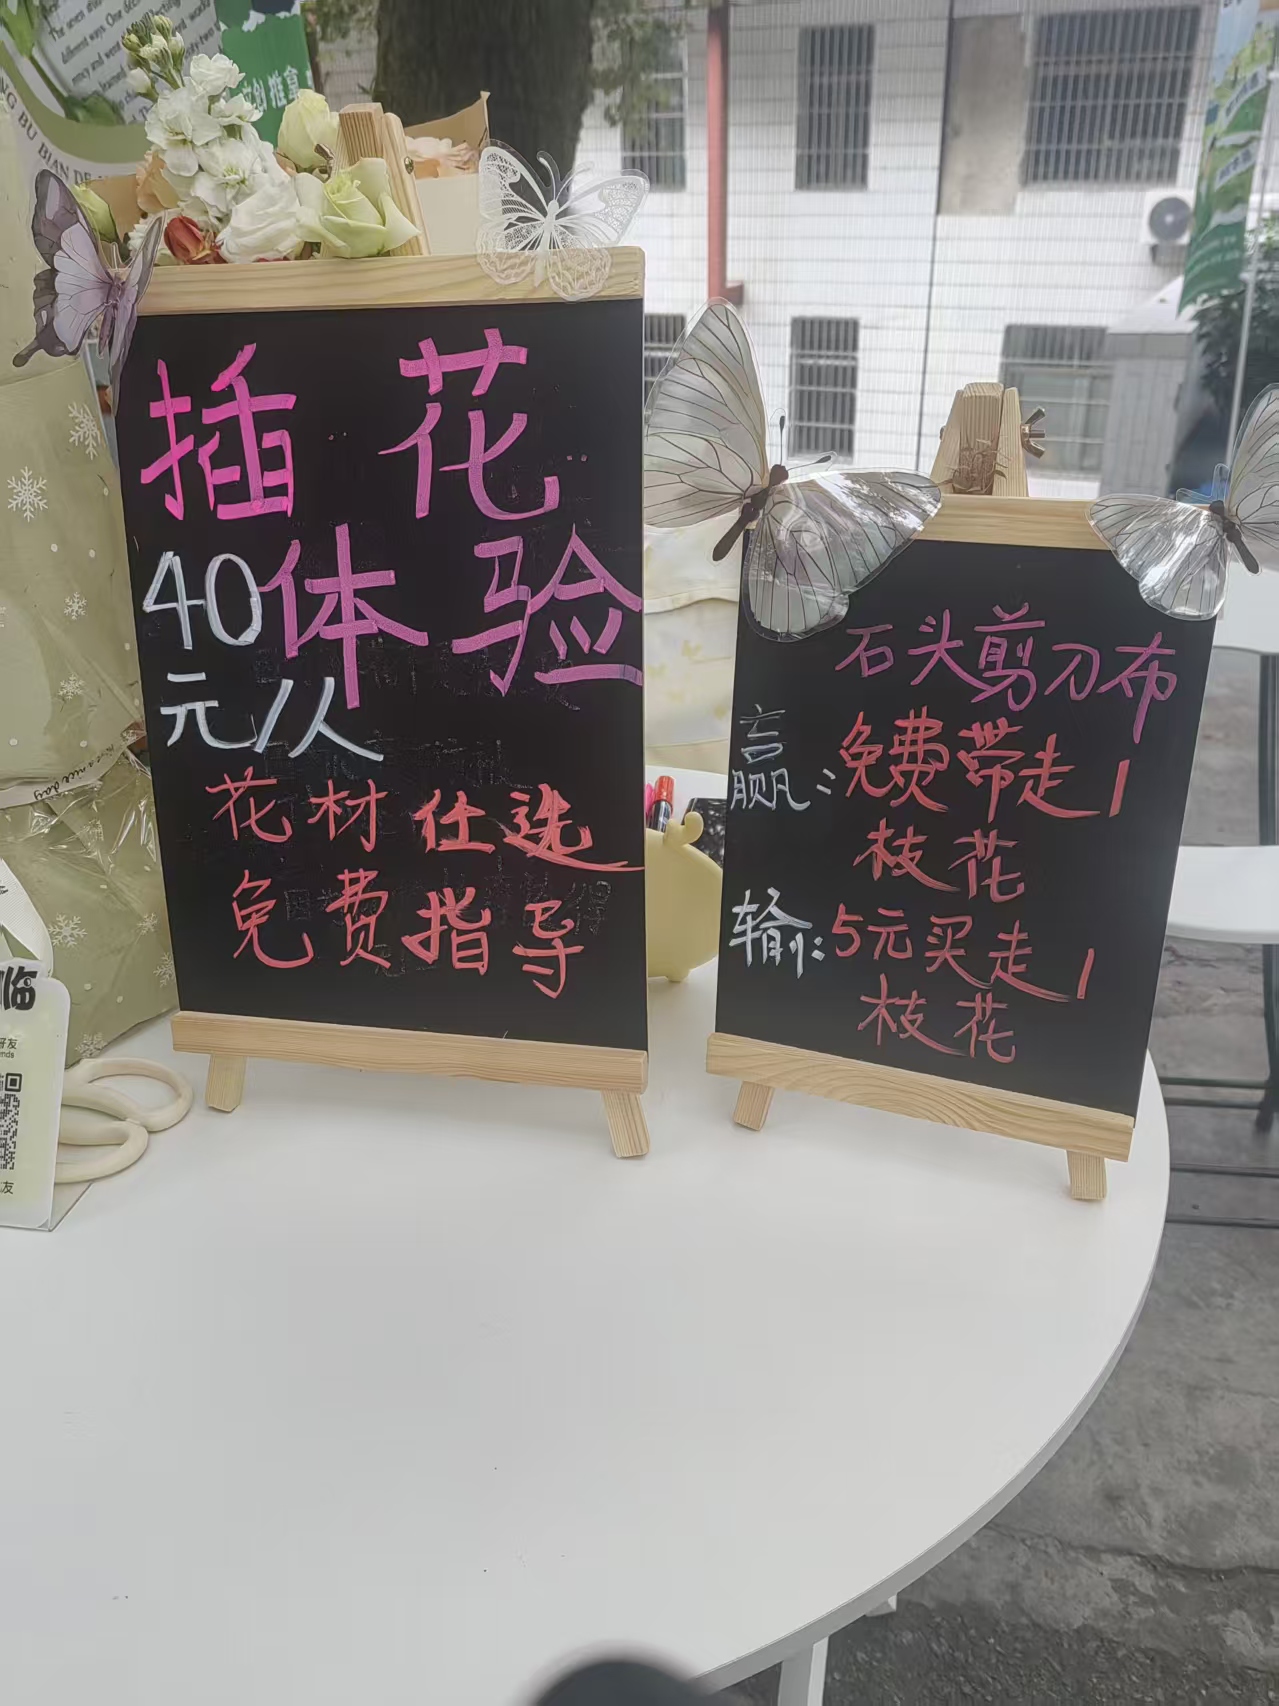 插花
体验
40
元/人
花材仕选
免费指导
石头剪刀布
赢:免费带走1
枝花
输:5元买走1
枝花